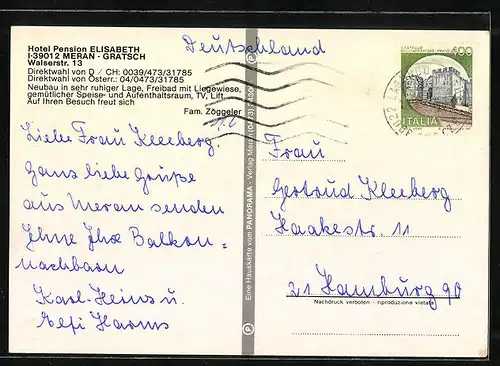 Hotel Pension ELISABETH
I-39012 MERAN - GRATSCH
Walserstr. 13
Direktwahl von D / CH: 0039/473/31785
Direktwahl von Österr.: 04/0473/31785
Neubau in sehr ruhiger Lage, Freibad mit Liegewiese,
gemütlicher Speise- und Aufenthaltsraum, TV, Lift
Auf Ihren Besuch freut sich
Fam. Zöggeler
Liebe Frau Kleeberg.
Ganz liebe Grüße
aus Meran senden
Ihre Balkon=
nachbarn
Karl-Heinz u.
Elfi Harms
Eine Hauskarte vom PANORAMA - Verlag Meran
Deutschland
CASTELLO
400
ITALIA
Frau
Gertrud Kleeberg
Haakestr. 11
21 Hamburg 90
Nachdruck verboten - riproduzione vietata